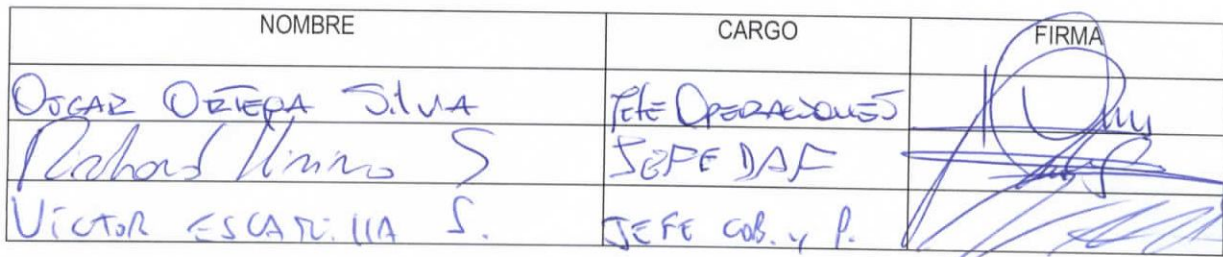 NOMBRE CARGO FIRMA
OSCAR ORTEGA SILVA JEFE OPERACIONES
Richard S JEFE DAF
VICTOR ESCATILLA S. JEFE COB. y P.